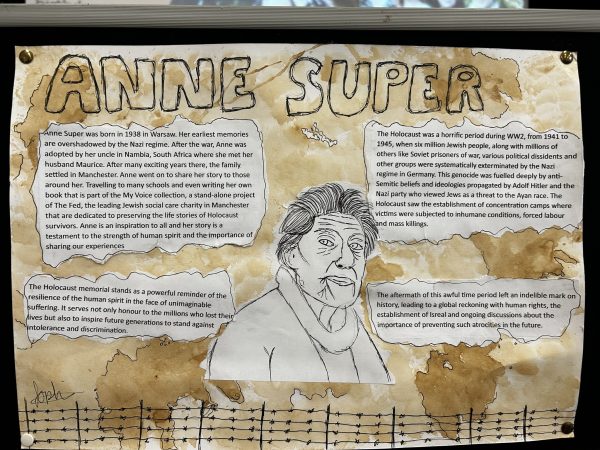 ANNE SUPER
Anne Super was born in 1938 in Warsaw. Her earliest memories
are overshadowed by the Nazi regime. After the war, Anne was
adopted by her uncle in Nambia, South Africa where she met her
husband Maurice. After many exciting years there, the family
settled in Manchester. Anne went on to share her story to those
around her. Travelling to many schools and even writing her own
book that is part of the My Voice collection, a stand-alone project
of The Fed, the leading Jewish social care charity in Manchester
that are dedicated to preserving the life stories of Holocaust
survivors. Anne is an inspiration to all and her story is a
testament to the strength of human spirit and the importance of
sharing our experiences
The Holocaust was a horrific period during WW2, from 1941 to
1945, when six million Jewish people, along with millions of
others like Soviet prisoners of war, various political dissidents and
other groups were systematically exterminated by the Nazi
regime in Germany. This genocide was fuelled deeply by anti-
Semitic beliefs and ideologies propagated by Adolf Hitler and the
Nazi party who viewed Jews as a threat to the Ayan race. The
Holocaust saw the establishment of concentration camps where
victims were subjected to inhumane conditions, forced labour
and mass killings.
The Holocaust memorial stands as a powerful reminder of the
resilience of the human spirit in the face of unimaginable
suffering. It serves not only honour to the millions who lost their
lives but also to inspire future generations to stand against
intolerance and discrimination.
The aftermath of this awful time period left an indelible mark on
history, leading to a global reckoning with human rights, the
establishment of Isreal and ongoing discussions about the
importance of preventing such atrocities in the future.